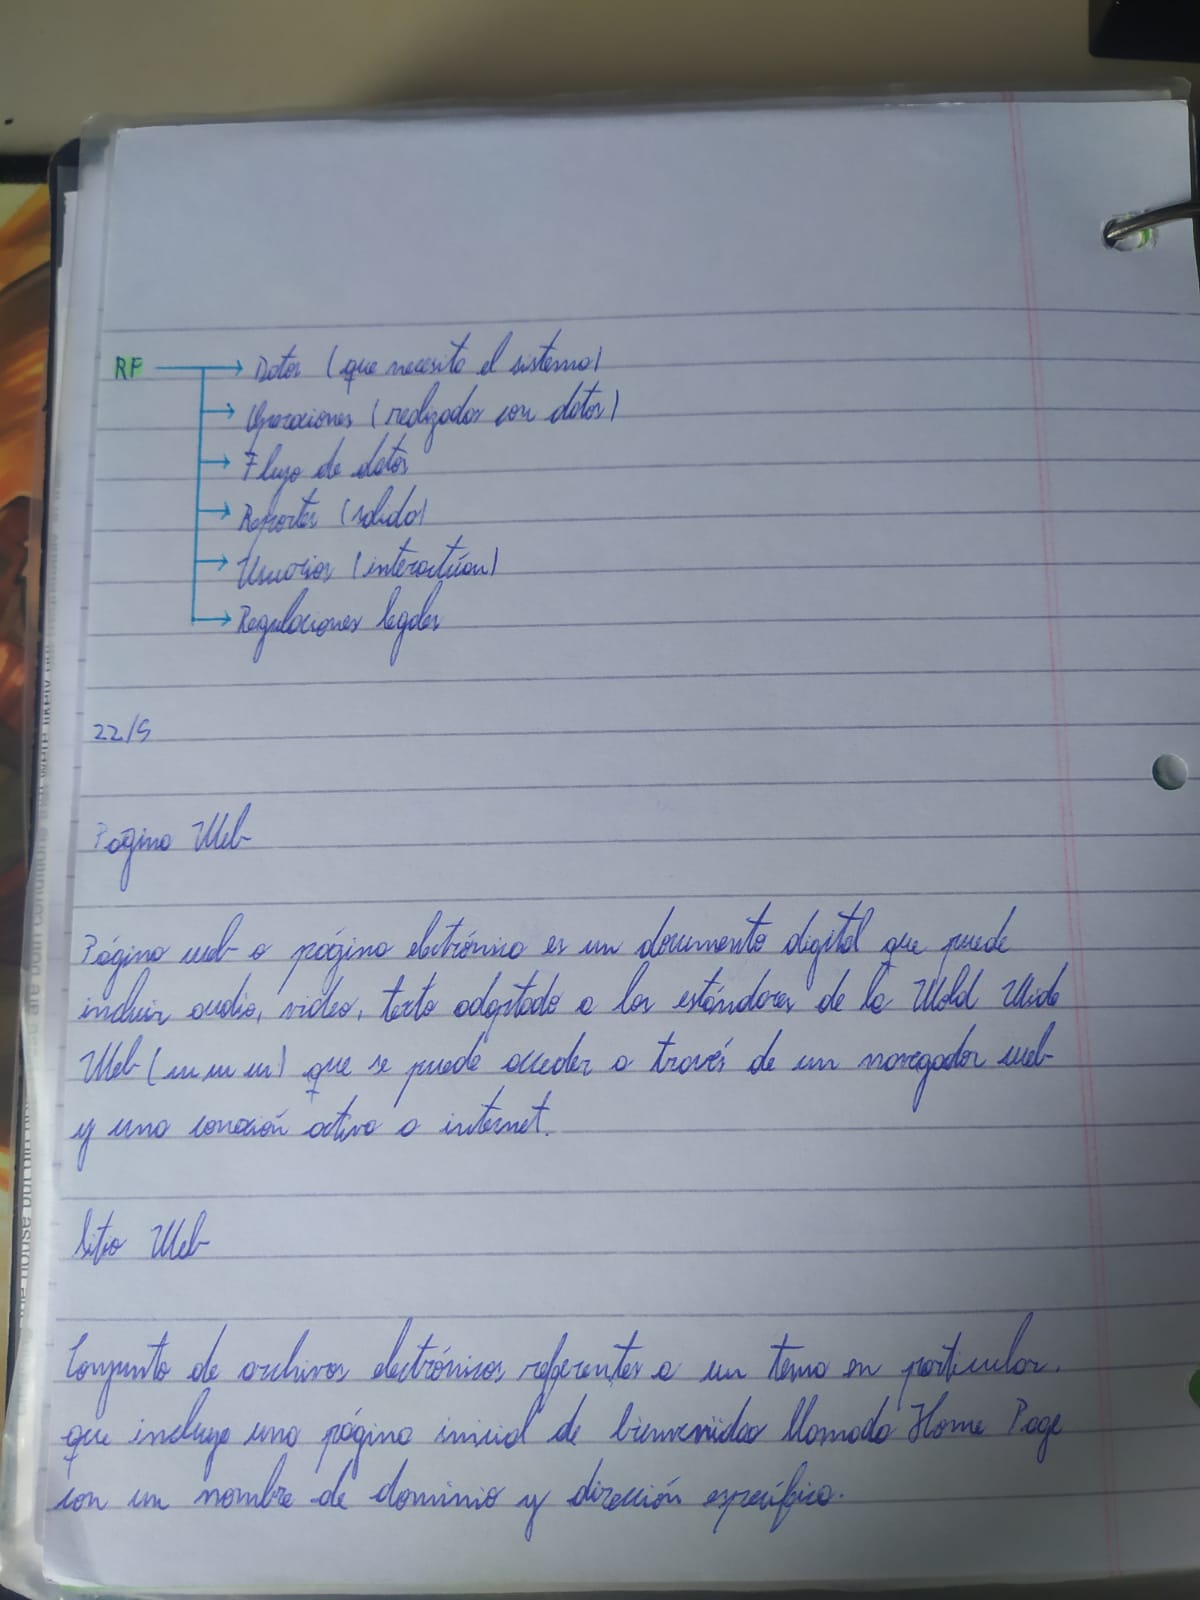 RF → Datos (que necesita el sistema)
→ Operaciones (realizadas con datos)
→ Flujo de datos
→ Reportes (salida)
→ Usuarios (interacción)
→ Regulaciones legales
22/5
Página Web
Página web o página electrónica es un documento digital que puede
incluir audio, video, texto adaptado a los estándares de la Wold Wide
Web (w w w) que se puede acceder a través de un navegador web
y una conexión activa a internet.
Sitio Web
Conjunto de archivos electrónicos referentes a un tema en particular.
que incluye una página inicial de bienvenidas llamada Home Page
con un nombre de dominio y dirección específica.